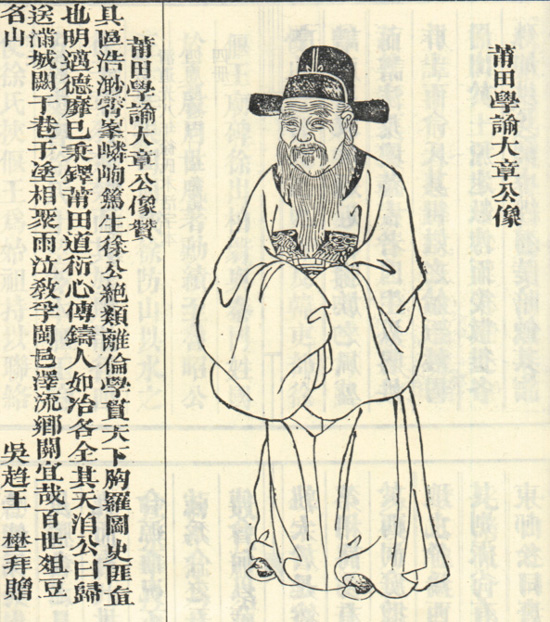 莆田學諭大章公像
莆田學諭大章公像贊
具區浩渺峯嶙峋篤生徐公絕類離倫學貫天下胸羅圖史匪直
也明邁德靡已秉鐸莆田道衍心傳鑄人如冶各全其天洎公曰歸
送滿城于巷于塗相聚雨泣教孚閩邑澤流鄉關宜哉百世俎豆
名山
吳趨王拜贈